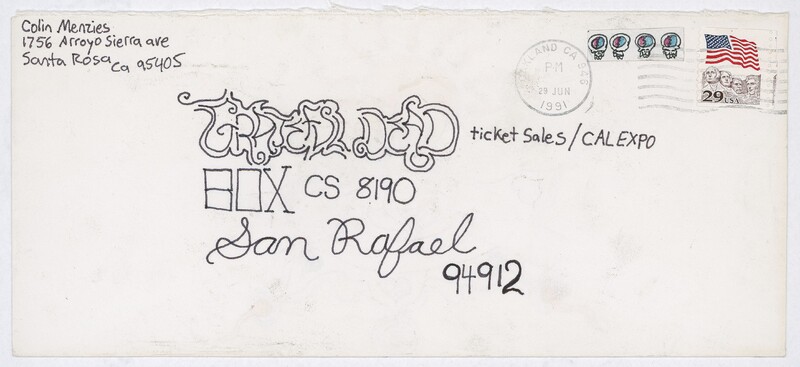 Colin Menzies
1756 Arroyo Sierra ave
Santa Rosa Ca 95405
OAKLAND CA 946
PM
29 JUN
1991
29 USA
GRATEFUL DEAD ticket Sales/CALEXPO
BOX CS 8190
San Rafael
94912